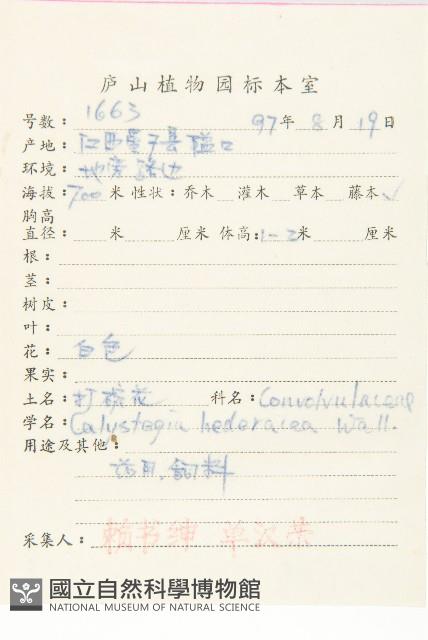 庐山植物园标本室
号数: 1663 97年 8月 19日
产地: 江西星子县隘口
环境: 地旁路边
海拔: 700 米 性状: 乔木 灌木 草本 藤本 ✓
胸高
直径: 米 厘米 体高: 1-2米 厘米
根:
茎:
树皮:
叶:
花: 白色
果实:
土名: 打碗花 科名: Convolvulaceae
学名: Calystegia hederacea Wall.
用途及其他:
药用,飼料
采集人: 赖书绅 单汉荣
國立自然科學博物館
NATIONAL MUSEUM OF NATURAL SCIENCE